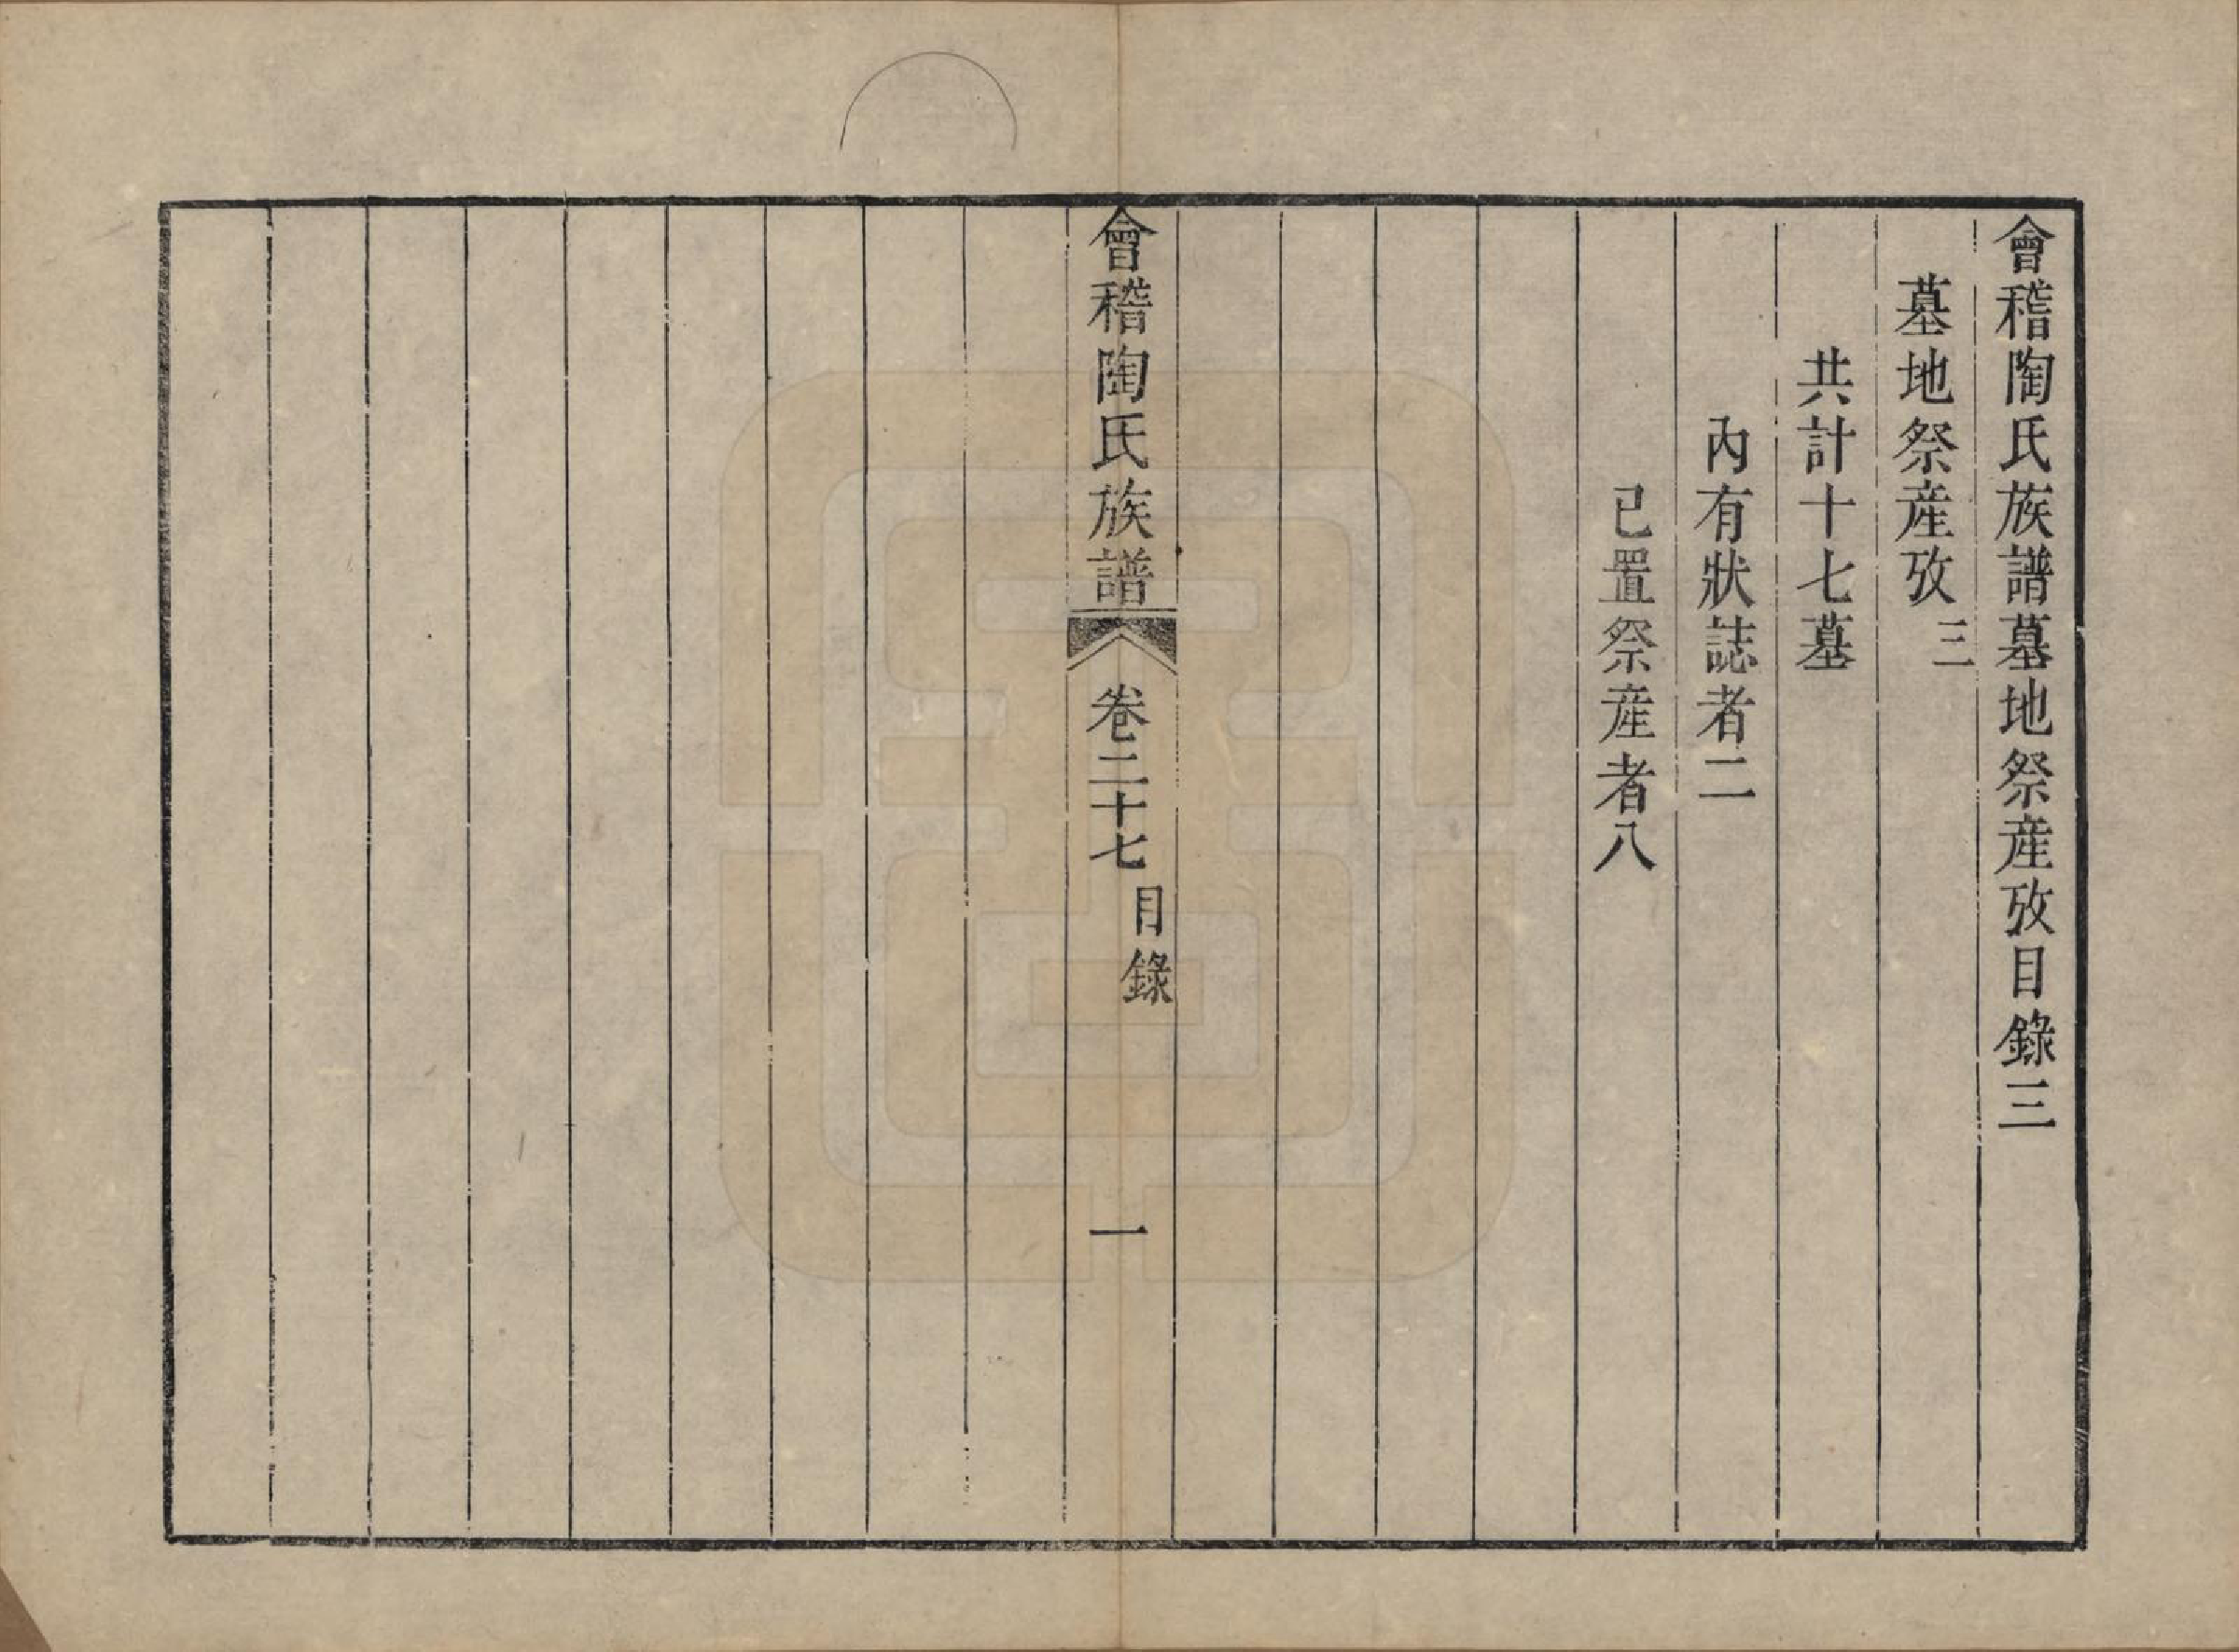 會稽陶氏族譜墓地祭產攷目錄三
墓地祭產攷三
共計十七墓
內有狀誌者二
已置祭產者八
會稽陶氏族譜 卷二十七 目錄 一